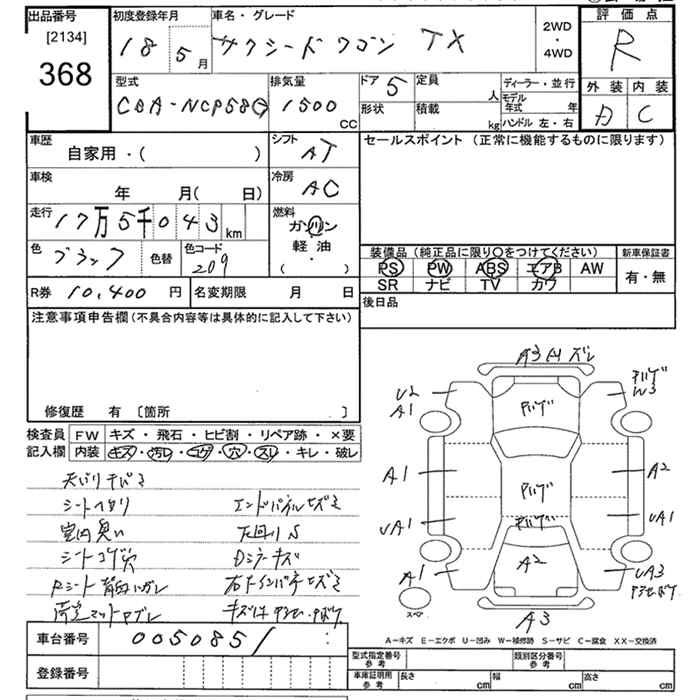 出品番号 初度登録年月 車名・グレード 評価点
[2134] 18 5月 サクシードワゴン TX 2WD・4WD R
368 外装 内装
型式 排気量 ドア 5 定員 人 ディーラー・並行
CBA-NCP58G 1500 CC 形状 積載 kg モデル年式 年 ハンドル 左・右 C
車歴 シフト セールスポイント (正常に機能するものに限ります)
自家用・( ) AT
車検 冷房
年 月( 日) AC
走行 17万5千043 km 燃料
ガソリン
色 ブラック 色替 色コード 209 軽油
・( )
装備品 (純正品に限り○をつけてください) 新車保証書
PS PW ABS エアB AW 有・無
SR ナビ TV カワ
R券 10,400 円 名変期限 月 日 後日品
注意事項申告欄 (不具合内容等は具体的に記入して下さい)
修復歴 有 〔箇所 〕
検査員 FW キズ・飛石・ヒビ割・リペア跡・×要
記入欄 内装 キズ・汚レ・コゲ・穴・スレ・キレ・破レ
シートヘタリ エンドパネルヒズミ
室内臭い
シートコゲ穴
A3
U2
A1
W3
A1 A2
UA1 UA1
A2
A1 UA3
スペア
A3
A-キズ E-エクボ U-凹み W-補修跡 S-サビ C-腐食 XX-交換済
車台番号 0050851
登録番号
型式指定番号 参考 類別区分番号 参考
車庫証明用 参考 長さ cm 幅 cm 高さ cm